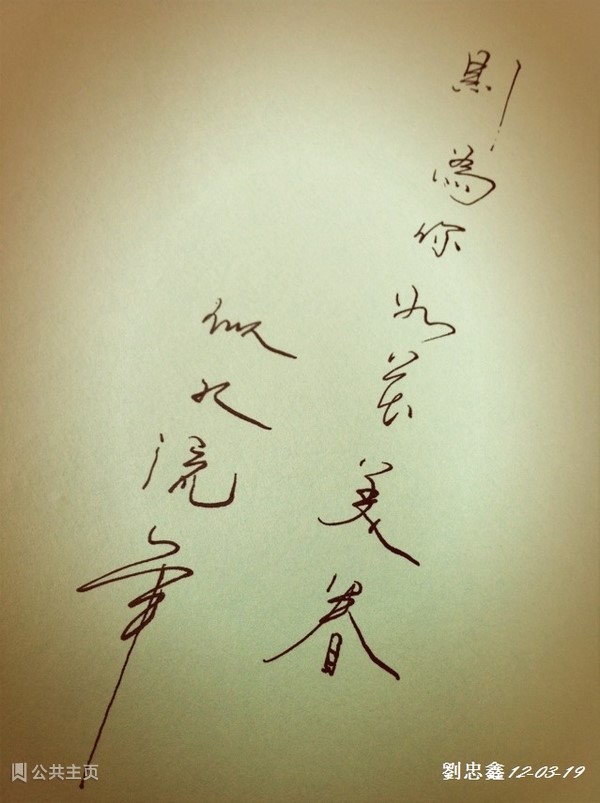 則為你如花美眷
似水流年
公共主页
劉忠鑫12-03-19